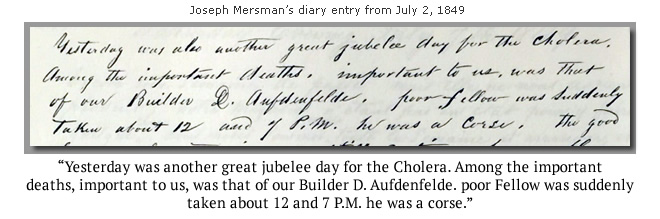 Joseph Mersman's diary entry from July 2, 1849
Yesterday was also another great jubelee day for the Cholera.
Among the important deaths. important to us, was that
of our Builder D. Aufdenfelde. poor fellow was suddenly
taken about 12 and 7 P.M. he was a Corse. The good
“Yesterday was another great jubelee day for the Cholera. Among the important
deaths, important to us, was that of our Builder D. Aufdenfelde. poor Fellow was suddenly
taken about 12 and 7 P.M. he was a corse.”